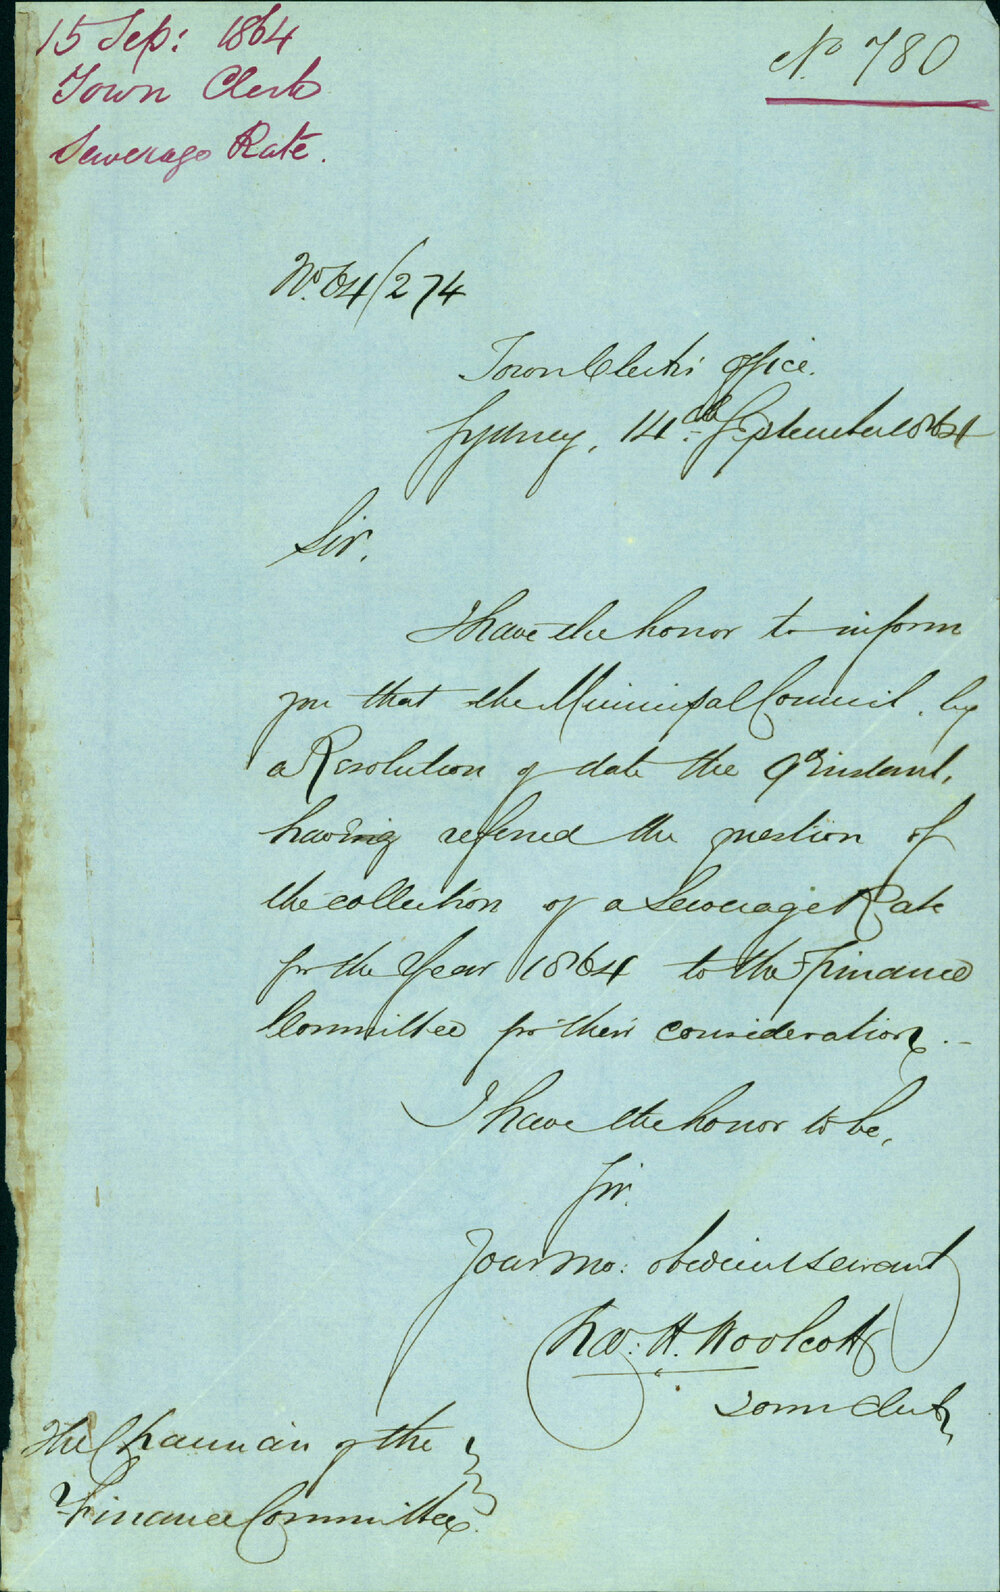 15 Sep: 1864
Town Clerk
Sewerage Rate.
No 780
No. 64/274
Town Clerk's Office.
Sydney, 14th September 1864
Sir,
I have the honor to inform
you that the Municipal Council, by
a Resolution of date the 9th instant,
having referred the question of
the collection of a Sewerage Rate
for the Year 1864 to the Finance
Committee for their consideration.—
I have the honor to be,
Sir,
Your mo: obedient servant
Chas: H. Woolcott
Town Clerk
The Chairman of the
Finance Committee.